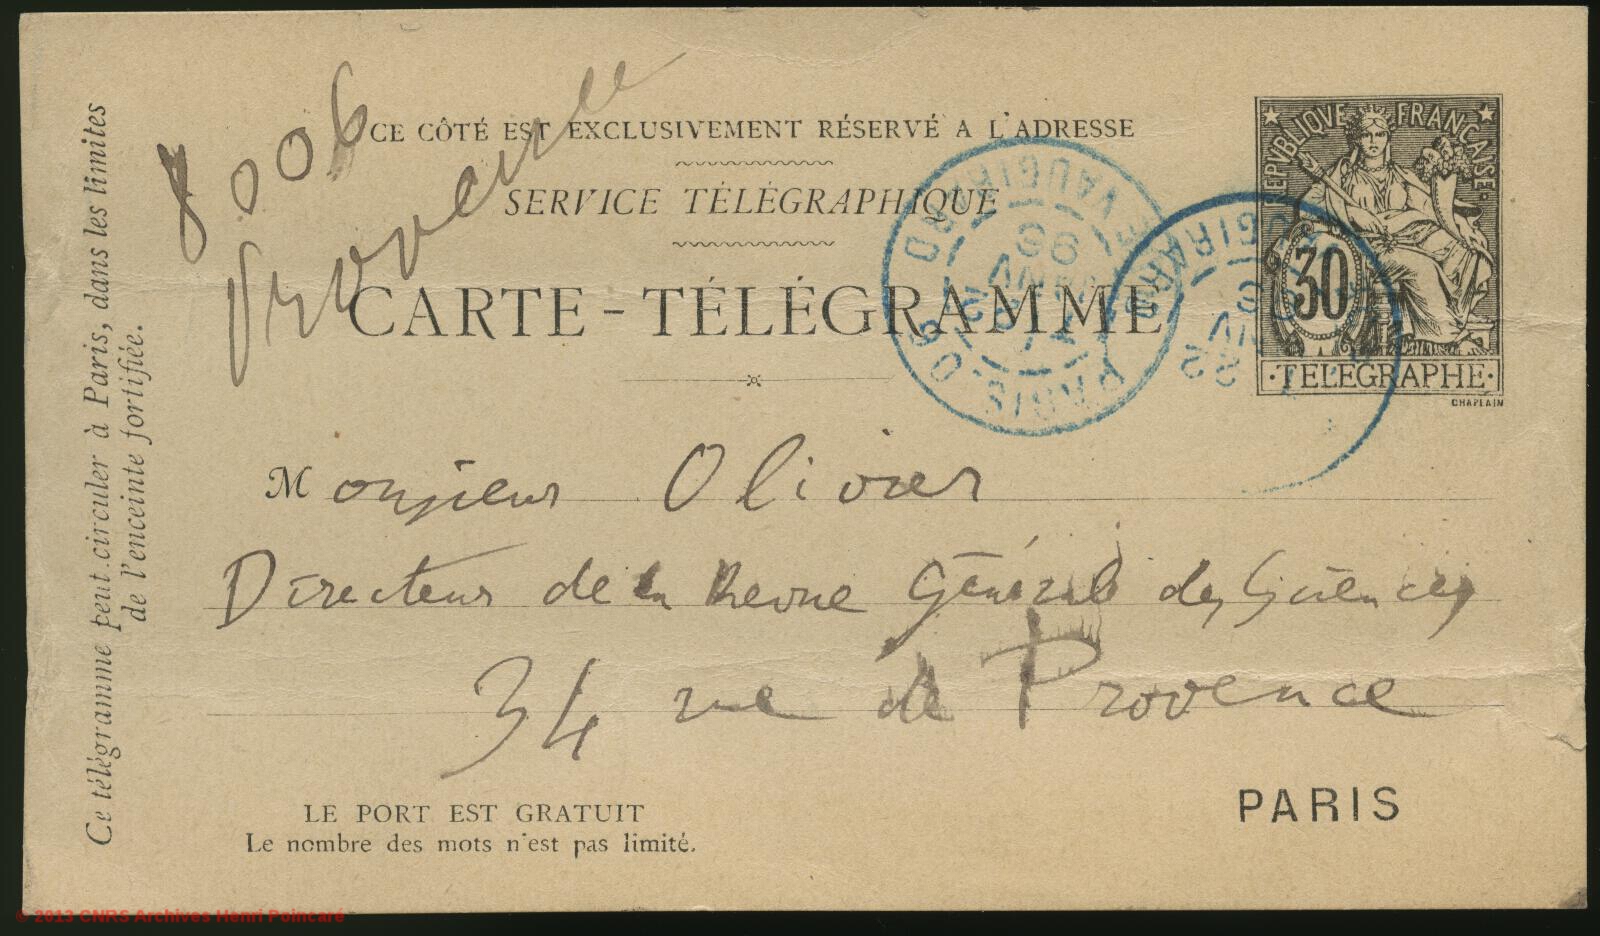 8.006
Provence
CE CÔTÉ EST EXCLUSIVEMENT RÉSERVÉ A L'ADRESSE
SERVICE TÉLÉGRAPHIQUE
CARTE-TÉLÉGRAMME
REPUBLIQUE FRANCAISE
30
TELEGRAPHE
CHAPLAIN
PARIS-DE VAUGIRARD
JANV
96
Monsieur Olivier
Directeur de la Revue Générale des Sciences
34 rue de Provence
PARIS
LE PORT EST GRATUIT
Le nombre des mots n'est pas limité.
Ce télégramme peut circuler à Paris, dans les limites
de l'enceinte fortifiée.
© 2013 CNRS Archives Henri Poincaré